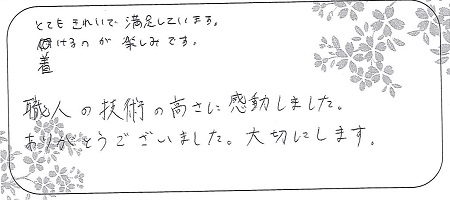 とてもきれいで満足しています。
着けるのが楽しみです。
職人の技術の高さに感動しました。
ありがとうございました。大切にします。